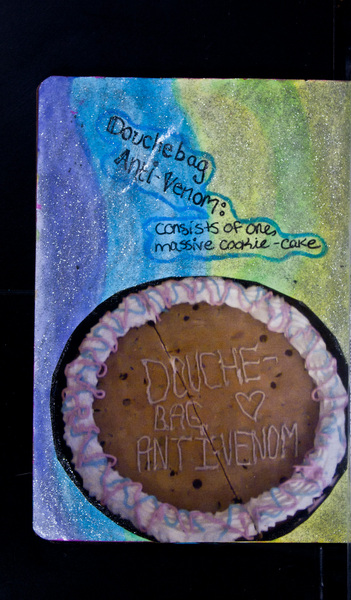 Douchebag
Anti-Venom:
consists of one,
massive cookie-cake
DOUCHE-
BAG ♡
ANTI-VENOM